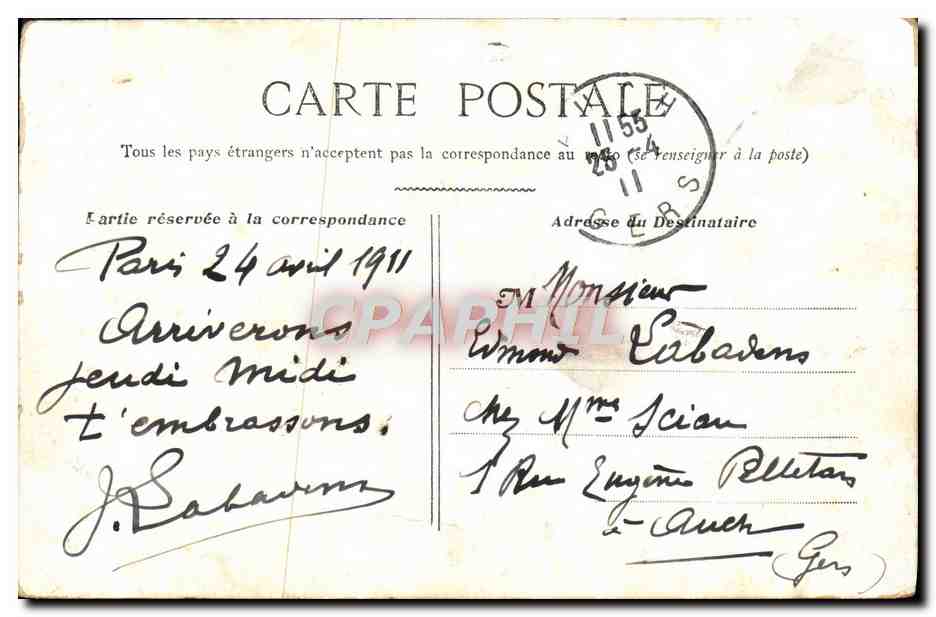 CARTE POSTALE
Tous les pays étrangers n'acceptent pas la correspondance au recto (se renseigner à la poste)
11 55
25 - 4
11
GERS
Partie réservée à la correspondance
Paris 24 avril 1911
Arriverons
jeudi midi
t'embrassons.
J. Labadens
Adresse du Destinataire
M Monsieur
Edmond Labadens
chez Mme Sciau
1 Rue Eugène Pelletan
à Auch
(Gers)
CPAPHIL